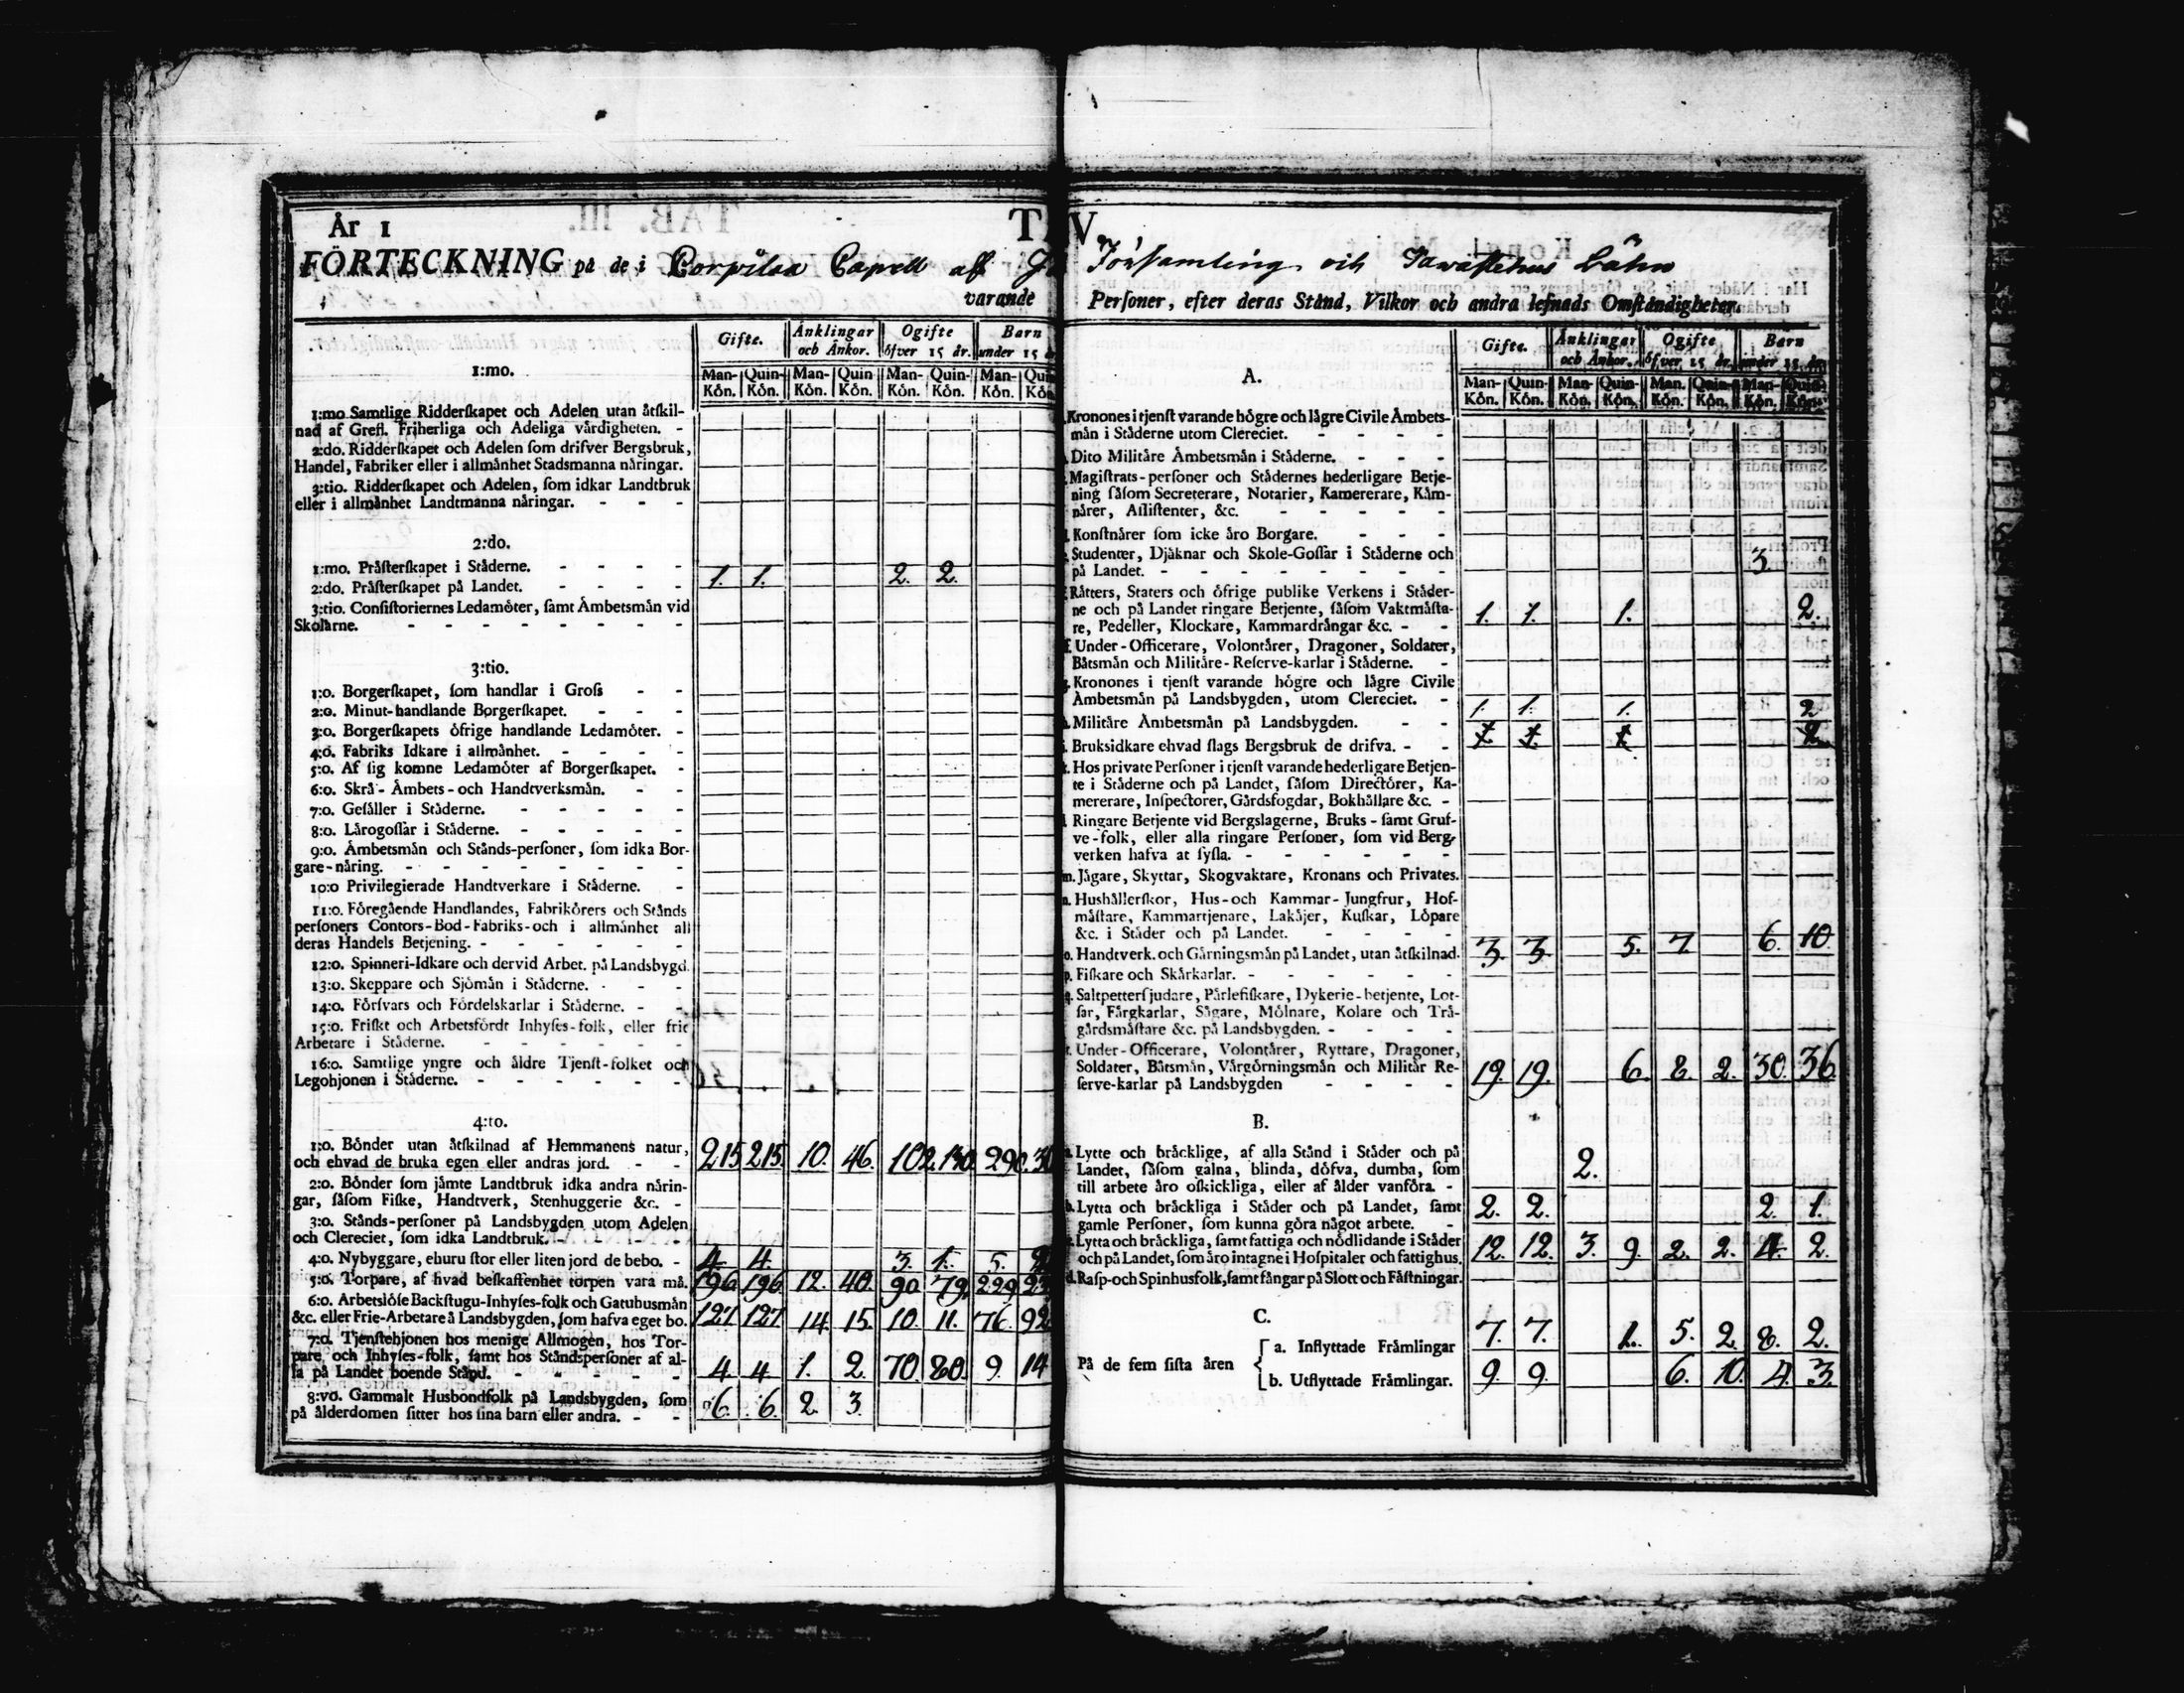 År 1
FÖRTECKNING på de i Corpilax Capell af
varande
1:mo.
Gifte. Änklingar och Änkor. Ogifte öfver 15 år. Barn under 15
Man-Kön. Quin-Kön. Man-Kön. Quin-Kön. Man-Kön. Quin-Kön. Man-Kön.
1:mo Samtlige Ridderskapet och Adelen utan åtskil-
nad af Grefl. Friherliga och Adeliga värdigheten. -
2:do. Ridderskapet och Adelen som drifver Bergsbruk,
Handel, Fabriker eller i allmänhet Stadsmanna näringar.
3:tio. Ridderskapet och Adelen, som idkar Landtbruk
eller i allmänhet Landtmanna näringar. - - -
2:do.
1:mo. Prästerskapet i Städerne. - - - -
2:do. Prästerskapet på Landet. - - - - 1. 1. 2. 2.
3:tio. Consistoriernes Ledamöter, samt Ämbetsmän vid
Skolarne. - - - - - - - -
3:tio.
1:o. Borgerskapet, som handlar i Gross - -
2:o. Minut-handlande Borgerskapet. - - -
3:o. Borgerskapets öfrige handlande Ledamöter. -
4:o. Fabriks Idkare i allmänhet. - - - -
5:o. Af sig komne Ledamöter af Borgerskapet. -
6:o. Skrå-Ämbets-och Handtverksmän. - -
7:o. Gesäller i Städerne. - - - - -
8:o. Lärogossar i Städerne. - - - - -
9:o. Ämbetsmän och Stånds-personer, som idka Bor-
gare-näring. - - - - - - - -
10:o Privilegierade Handtverkare i Städerne. -
11:o. Föregående Handlandes, Fabrikörers och Stånds
personers Contors-Bod-Fabriks-och i allmänhet all
deras Handels Betjening. - - - - - -
12:o. Spinneri-Idkare och dervid Arbet. på Landsbygd.
13:o. Skeppare och Sjömän i Städerne. - - -
14:o. Försvars och Fördelskarlar i Städerne. - -
15:o. Friskt och Arbetsfördt Inhyses-folk, eller frie
Arbetare i Städerne. - - - - - -
16:o. Samtlige yngre och äldre Tjenst-folket och
Legohjonen i Städerne. - - - - - -
4:to.
1:o. Bönder utan åtskilnad af Hemmanens natur,
och ehvad de bruka egen eller andras jord. - - 215 215. 10. 46. 102. 130. 290.
2:o. Bönder som jämte Landtbruk idka andra närin-
gar, såsom Fiske, Handtverk, Stenhuggerie &c. -
3:o. Stånds-personer på Landsbygden utom Adelen
och Clereciet, som idka Landtbruk. - -
4:o. Nybyggare, ehuru stor eller liten jord de bebo. - 4. 4. 3. 1. 5.
5:o. Torpare, af hvad beskaffenhet torpen vara må. 196 196 12. 40. 90 79. 229
6:o. Arbetslöse Backstugu-Inhyses-folk och Gatuhusmän
&c. eller Frie-Arbetare å Landsbygden, som hafva eget bo. 127 127 14. 15. 10. 11. 76. 92
7:o. Tjenstehjonen hos menige Allmogen, hos Tor-
pare, och Inhyses-folk, samt hos Ståndspersoner af al-
la på Landet boende Stånd. - - - - - 4. 4 1. 2. 70 80. 9. 14
8:vo. Gammalt Husbondfolk på Landsbygden, som
på ålderdomen sitter hos sina barn eller andra. - - 6. 6. 2. 3.
Församling och Tavastehus Lähn
Personer, efter deras Stånd, Vilkor och andra lefnads Omständigheter.
A.
Gifte. Änklingar och Änkor. Ogifte öfver 15 år. Barn under 15 år.
Man-Kön. Quin-Kön. Man-Kön. Quin-Kön. Man.Kön. Quin-Kön. Man-Kön. Quin-Kön.
Kronones i tjenst varande högre och lägre Civile Ämbets-
män i Städerne utom Clereciet. - - - -
Dito Militäre Ämbetsmän i Städerne. - - -
Magistrats-personer och Städernes hederligare Betje-
ning såsom Secreterare, Notarier, Kamererare, Käm-
närer, Assistenter, &c. - - - - -
Konstnärer som icke äro Borgare. - - -
Studenter, Djäknar och Skole-Gossar i Städerne och
på Landet. - - - - - - - - 3.
Rätters, Staters och öfrige publike Verkens i Städer-
ne och på Landet ringare Betjente, såsom Vaktmästa-
re, Pedeller, Klockare, Kammardrängar &c. - - 1. 1. 1. 2.
f. Under-Officerare, Volontärer, Dragoner, Soldater,
Båtsmän och Militäre-Reserve-karlar i Städerne. -
Kronones i tjenst varande högre och lägre Civile
Ämbetsmän på Landsbygden, utom Clereciet. - 1. 1. 1. 2
Militäre Ämbetsmän på Landsbygden. - -
i. Bruksidkare ehvad slags Bergsbruk de drifva. - -
Hos private Personer i tjenst varande hederligare Betjen-
te i Städerne och på Landet, såsom Directörer, Ka-
mererare, Inspectorer, Gårdsfogdar, Bokhållare &c. -
l. Ringare Betjente vid Bergslagerne, Bruks-samt Gruf-
ve-folk, eller alla ringare Personer, som vid Berg-
verken hafva at syssla. - - - - - -
m. Jägare, Skyttar, Skogvaktare, Kronans och Privates.
n. Hushållerskor, Hus-och Kammar-Jungfrur, Hof-
mästare, Kammartjenare, Lakäjer, Kuskar, Löpare
&c. i Städer och på Landet. - - - -
o. Handtverk. och Gärningsmän på Landet, utan åtskilnad. 3. 3. 5. 7. 6. 10
p. Fiskare och Skärkarlar. - - - - - -
q. Saltpettersjudare, Pärlefiskare, Dykerie-betjente, Lot-
sar, Färgkarlar, Sågare, Mölnare, Kolare och Trä-
gårdsmästare &c. på Landsbygden. - - - -
r. Under-Officerare, Volontärer, Ryttare, Dragoner,
Soldater, Båtsmän, Vårgörningsmän och Militär Re-
serve-karlar på Landsbygden - - - - 19. 19. 6. 8. 2. 30. 36
B.
Lytte och bräcklige, af alla Stånd i Städer och på
Landet, såsom galna, blinda, döfva, dumba, som
till arbete äro oskickliga, eller af ålder vanföra. - 2.
b. Lytta och bräckliga i Städer och på Landet, samt
gamle Personer, som kunna göra något arbete. - 2. 2. 2. 1.
Lytta och bräckliga, samt fattiga och nödlidande i Städer
och på Landet, som äro intagne i Hospitaler och fattighus. 12. 12. 3. 9. 2. 2. 4. 2.
d. Rasp-och Spinhusfolk, samt fångar på Slott och Fästningar.
C.
På de fem sista åren
a. Inflyttade Främlingar 7. 7. 1. 5. 2. 8. 2.
b. Utflyttade Främlingar. 9. 9. 6. 10. 4. 3.